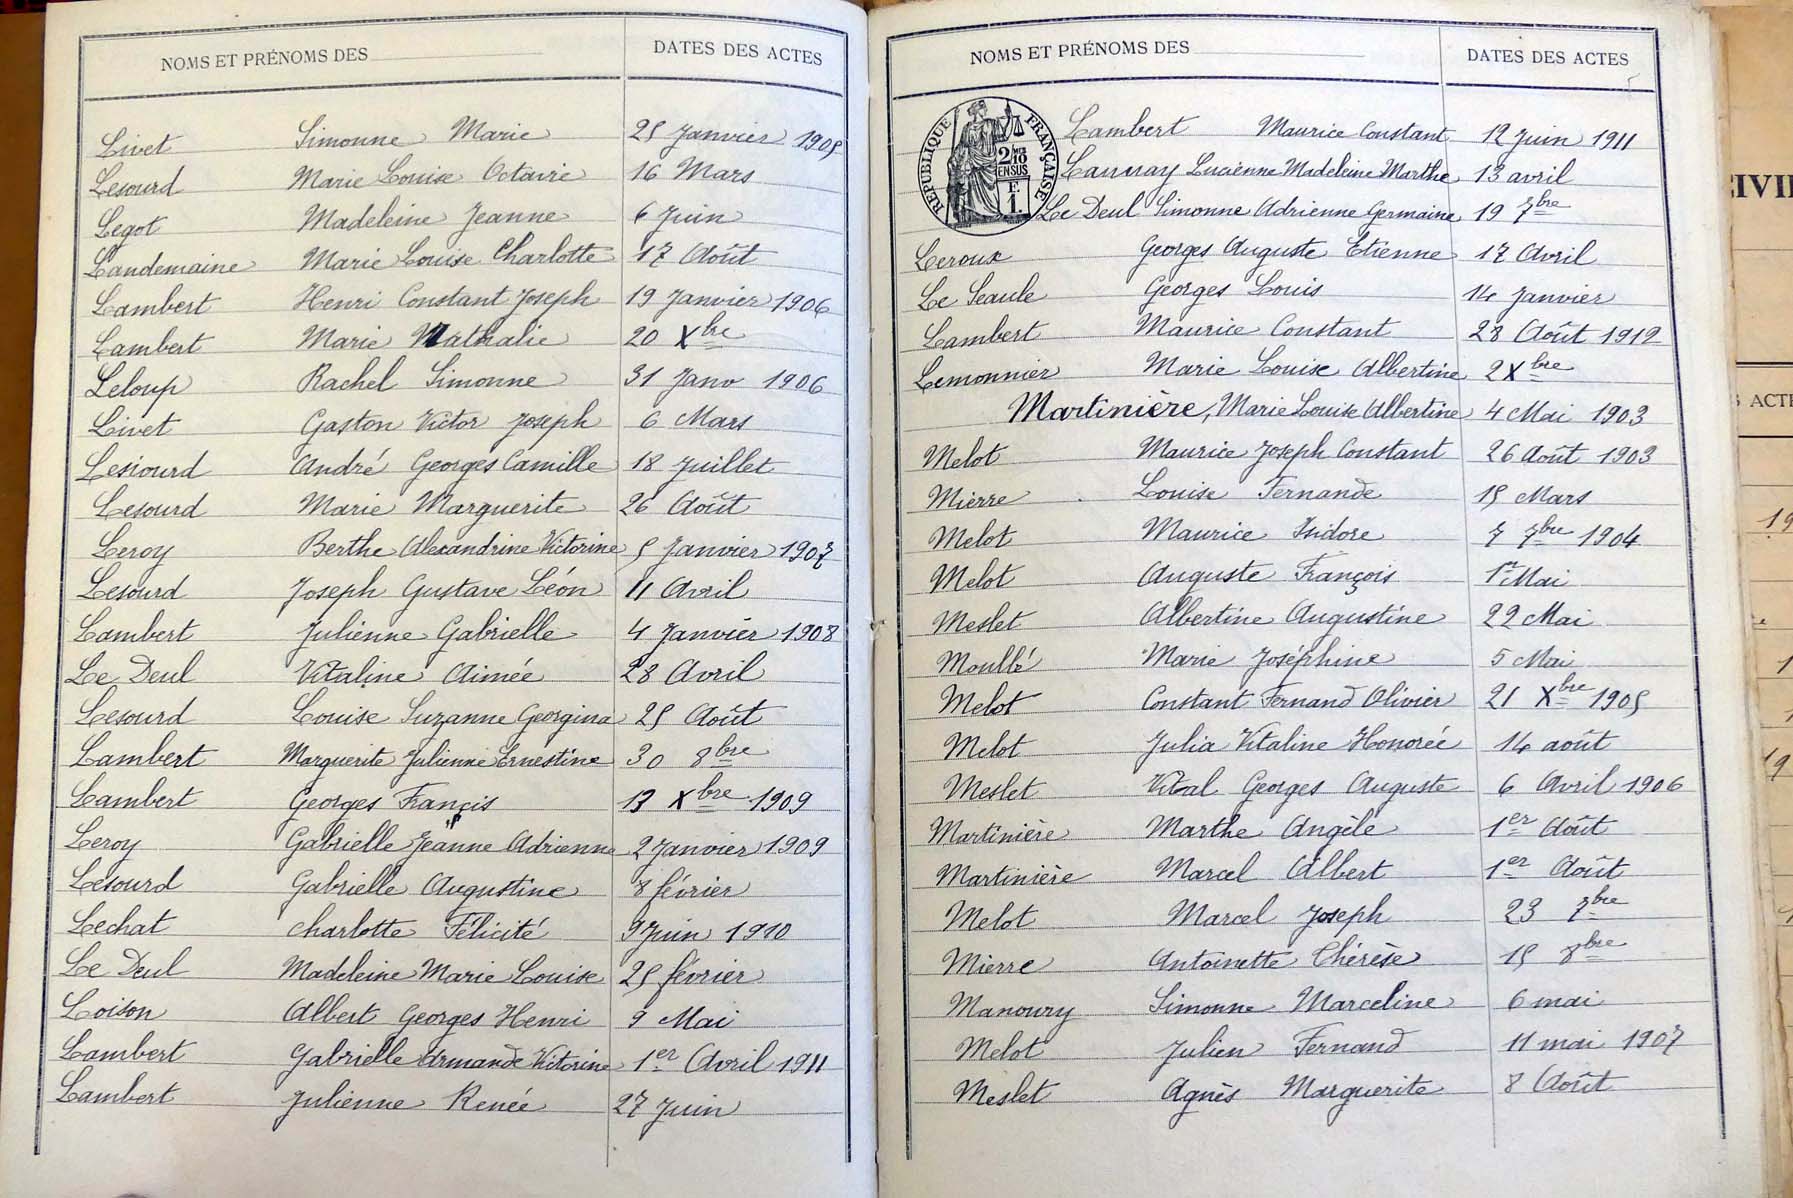 NOMS ET PRÉNOMS DES DATES DES ACTES
Livet Simonne Marie 25 Janvier 1905
Lesourd Marie Louise Octavie 16 Mars
Legot Madeleine Jeanne 6 Juin
Landemaine Marie Louise Charlotte 17 Août
Lambert Henri Constant Joseph 19 Janvier 1906
Lambert Marie Nathalie 20 Xbre
Leloup Rachel Simonne 31 Janv 1906
Livet Gaston Victor Joseph 6 Mars
Lesiourd André Georges Camille 18 Juillet
Lesourd Marie Marguerite 26 Août
Leroy Berthe Alexandrine Victorine 5 Janvier 1907
Lesourd Joseph Gustave Léon 11 Avril
Lambert Julienne Gabrielle 4 Janvier 1908
Le Deul Vitaline Aimée 28 Avril
Lesourd Louise Suzanne Georgina 25 Août
Lambert Marguerite Julienne Ernestine 30 8bre
Lambert Georges Françis 13 Xbre 1909
Leroy Gabrielle Jeanne Adrienne 2 Janvier 1909
Lesourd Gabrielle Augustine 8 février
Lechat Charlotte Félicité 9 Juin 1910
Le Deul Madeleine Marie Louise 25 février
Loison Albert Georges Henri 9 Mai
Lambert Gabrielle Armande Victorine 1er Avril 1911
Lambert Julienne Renée 27 Juin
NOMS ET PRÉNOMS DES DATES DES ACTES
RÉPUBLIQUE FRANÇAISE
2/10
EN SUS
F.
1.
Lambert Maurice Constant 12 Juin 1911
Launay Lucienne Madeleine Marthe 13 avril
Le Deul Simonne Adrienne Germaine 19 7bre
Leroux Georges Auguste Etienne 17 Avril
Le Seacle Georges Louis 14 Janvier
Lambert Maurice Constant 28 Août 1912
Lemonnier Marie Louise Albertine 2 Xbre
Martinière, Marie Louise Albertine 4 Mai 1903
Melot Maurice Joseph Constant 26 Août 1903
Mierre Louise Fernande 15 Mars
Melot Maurice Isidore 7 7bre 1904
Melot Auguste François 1er Mai
Meslet Albertine Augustine 22 Mai
Moullé Marie Joséphine 5 Mai
Melot Constant Fernand Olivier 21 Xbre 1905
Melot Julia Vitaline Honorée 14 août
Meslet Vital Georges Auguste 6 Avril 1906
Martinière Marthe Angèle 1er Août
Martinière Marcel Albert 1er Août
Melot Marcel Joseph 23 7bre
Mierre Antoinette Thérèse 15 8bre
Manoury Simonne Marceline 6 mai
Melot Julien Fernand 11 mai 1907
Meslet Agnès Marguerite 8 Août
CIVIL
ACTE
19
1
19